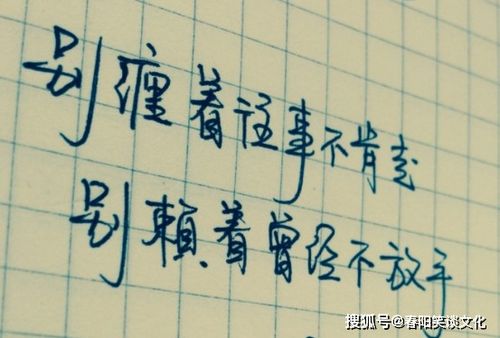 别缠着往事不肯走
别賴着曾经不放手
搜狐号@春阳笑谈文化